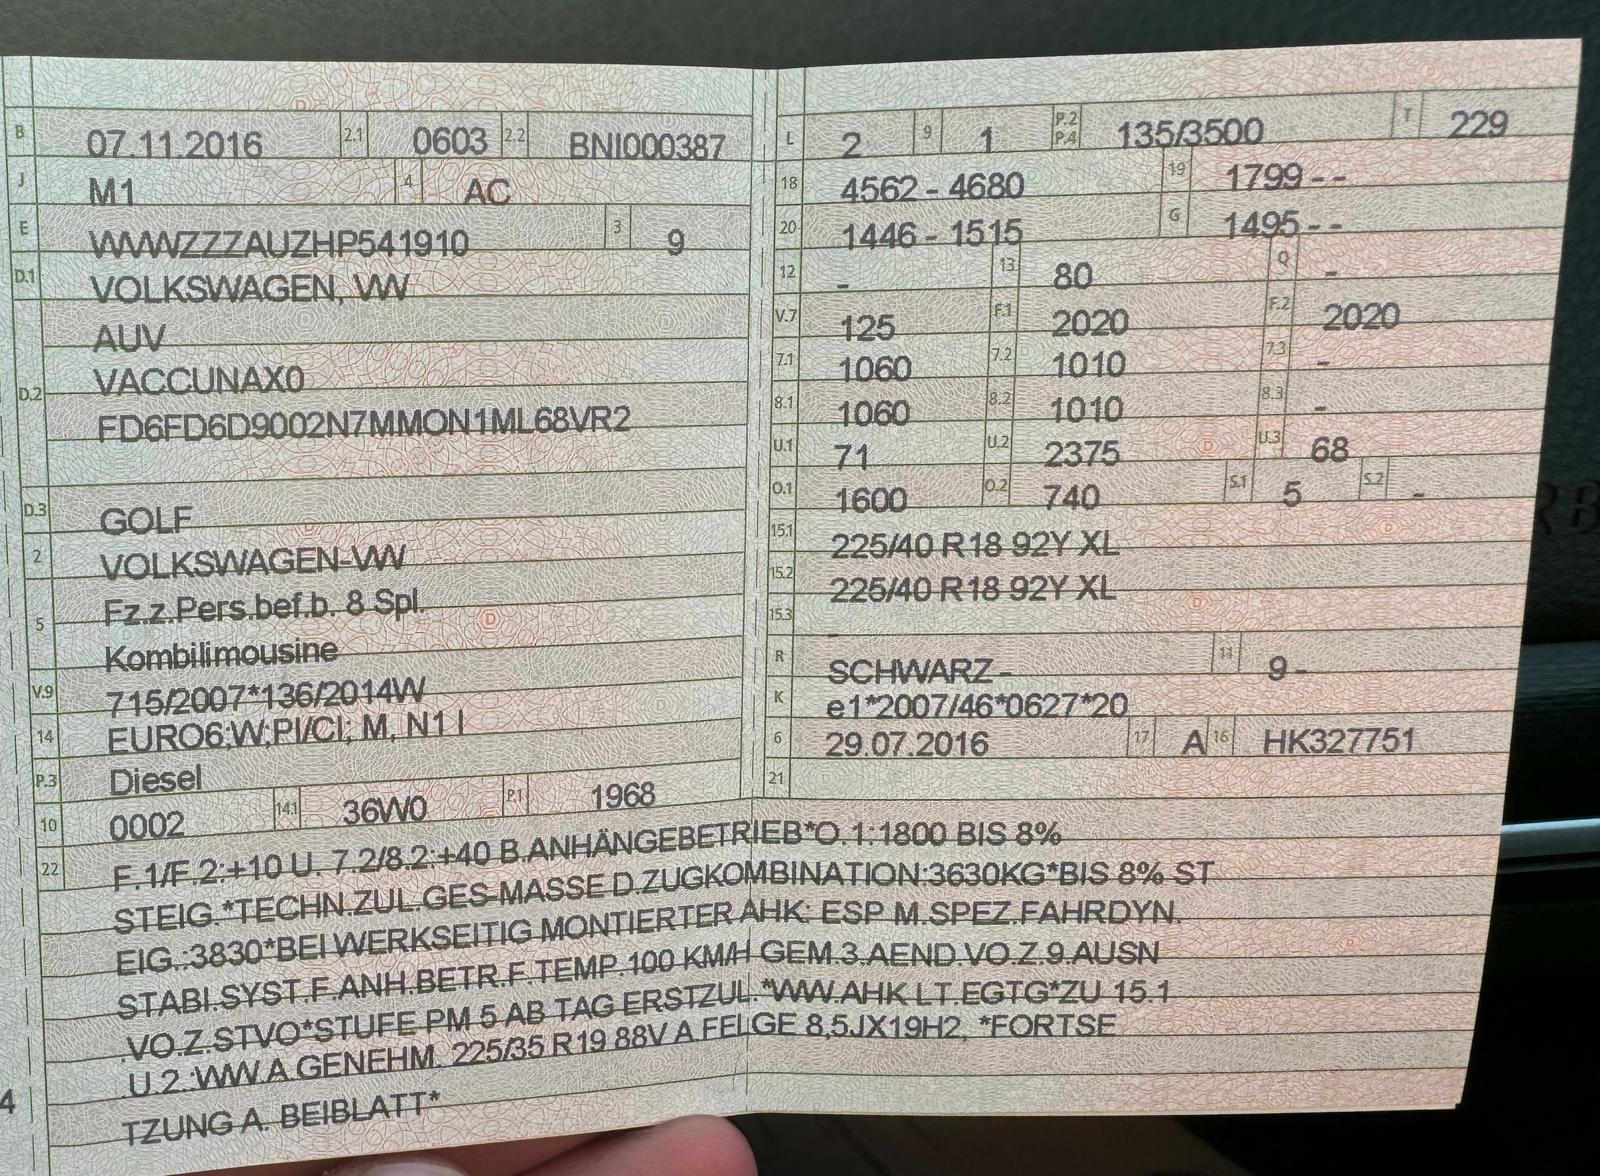 B 07.11.2016 2.1 0603 2.2 BNI000387
J M1 4 AC
E WVWZZZAUZHP541910 3 9
D.1 VOLKSWAGEN, VW
AUV
D.2 VACCUNAX0
FD6FD6D9002N7MMON1ML68VR2
D.3 GOLF
2 VOLKSWAGEN-VW
5 Fz.z.Pers.bef.b. 8 Spl.
Kombilimousine
V.9 715/2007*136/2014W
14 EURO6;W;PI/CI; M, N1 I
P.3 Diesel
10 0002 14.1 36W0 P.1 1968
L 2 9 1 P.2 P.4 135/3500 T 229
18 4562 - 4680 19 1799 - -
20 1446 - 1515 G 1495 - -
12 - 13 80 Q -
V.7 125 F.1 2020 F.2 2020
7.1 1060 7.2 1010 7.3 -
8.1 1060 8.2 1010 8.3 -
U.1 71 U.2 2375 U.3 68
O.1 1600 O.2 740 S.1 5 S.2 -
15.1 225/40 R18 92Y XL
15.2 225/40 R18 92Y XL
15.3 -
R SCHWARZ - 11 9 -
K e1*2007/46*0627*20
6 29.07.2016 17 A 16 HK327751
21
22 F.1/F.2:+10 U. 7.2/8.2:+40 B.ANHÄNGEBETRIEB*O.1:1800 BIS 8%
STEIG.*TECHN.ZUL.GES-MASSE D.ZUGKOMBINATION:3630KG*BIS 8% ST
EIG.:3830*BEI WERKSEITIG MONTIERTER AHK: ESP M.SPEZ.FAHRDYN.
STABI.SYST.F.ANH.BETR.F.TEMP.100 KM/H GEM.3.AEND.VO.Z.9.AUSN
.VO.Z.STVO*STUFE PM 5 AB TAG ERSTZUL.*WW.AHK LT.EGTG*ZU 15.1
U.2.:WW.A.GENEHM. 225/35 R19 88V A.FELGE 8,5JX19H2, *FORTSE
TZUNG A. BEIBLATT*
4